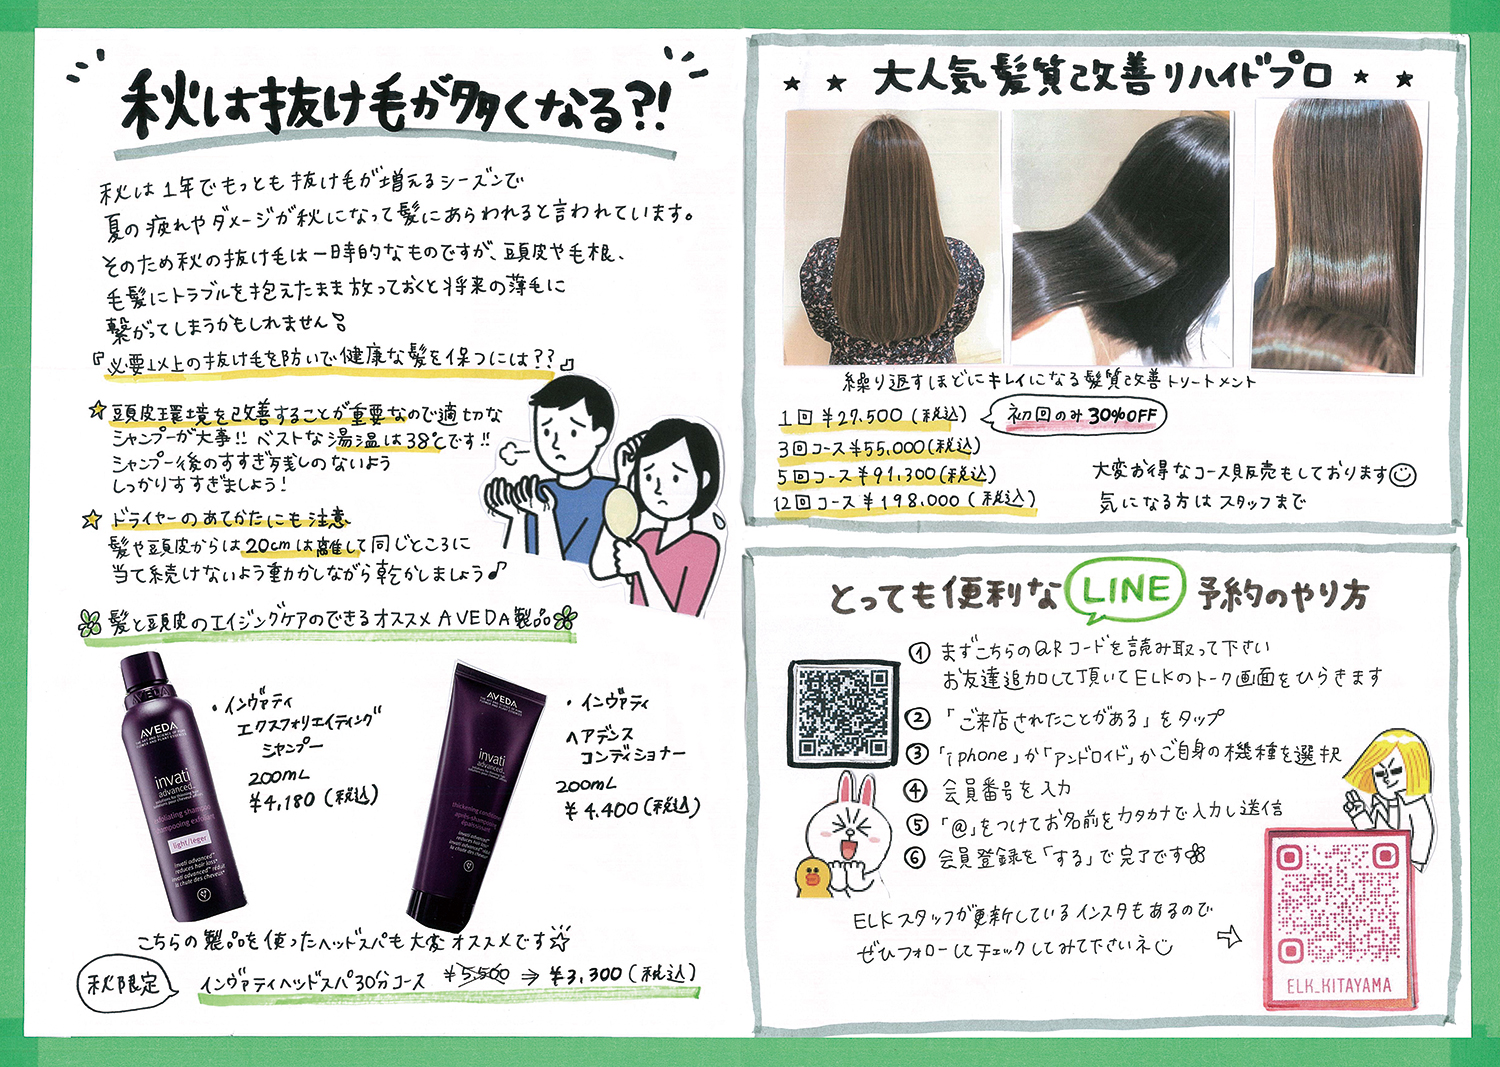 秋は抜け毛が多くなる?!
秋は1年でもっとも抜け毛が増えるシーズンで
夏の疲れやダメージが秋になって髪にあらわれると言われています。
そのため秋の抜け毛は一時的なものですが、頭皮や毛根、
毛髪にトラブルを抱えたまま放っておくと将来の薄毛に
繋がってしまうかもしれません
『必要以上の抜け毛を防いで健康な髪を保つには??』
☆頭皮環境を改善することが重要なので適切な
シャンプーが大事!! ベストな湯温は38℃です!!
シャンプー後のすすぎ残しのないよう
しっかりすすぎましょう!
☆ドライヤーのあてかたにも注意
髪や頭皮からは20cmは離して同じところに
当て続けないよう動かしながら乾かしましょう♪
髪と頭皮のエイジングケアのできるオススメAVEDA製品
AVEDA
invati
advanced™
exfoliating shampoo
shampooing exfoliant
light/léger
invati advanced™
reduces hair loss*
invati advanced™ réduit
la chute des cheveux*
・インヴァティ
エクスフォリエイティング
シャンプー
200mL
¥4,180(税込)
AVEDA
invati
advanced™
thickening conditioner
après-shampooing
épaississant
invati advanced™
reduces hair loss*
invati advanced™ réduit
la chute des cheveux*
・インヴァティ
ヘアデンス
コンディショナー
200mL
¥4.400(税込)
こちらの製品を使ったヘッドスパも大変オススメです☆
秋限定
インヴァティヘッドスパ30分コース ¥5,500 ⇒ ¥3,300(税込)
★ ★ 大人気髪質改善リハイドプロ ★ ★
繰り返すほどにキレイになる髪質改善トリートメント
1回 ¥27.500(税込)
初回のみ30%OFF
3回コース¥55.000(税込)
5回コース¥91,300(税込)
12回コース¥198.000(税込)
大変お得なコース販売もしております
気になる方はスタッフまで
とっても便利なLINE予約のやり方
① まずこちらのQRコードを読み取って下さい
お友達追加して頂いてELKのトーク画面をひらきます
② 「ご来店されたことがある」をタップ
③ 「iphone」か「アンドロイド」かご自身の機種を選択
④ 会員番号を入力
⑤ 「@」をつけてお名前をカタカナで入力し送信
⑥ 会員登録を「する」で完了です
ELKスタッフが更新しているインスタもあるので
ぜひフォローしてチェックしてみて下さいネ
⇨
ELK_KITAYAMA